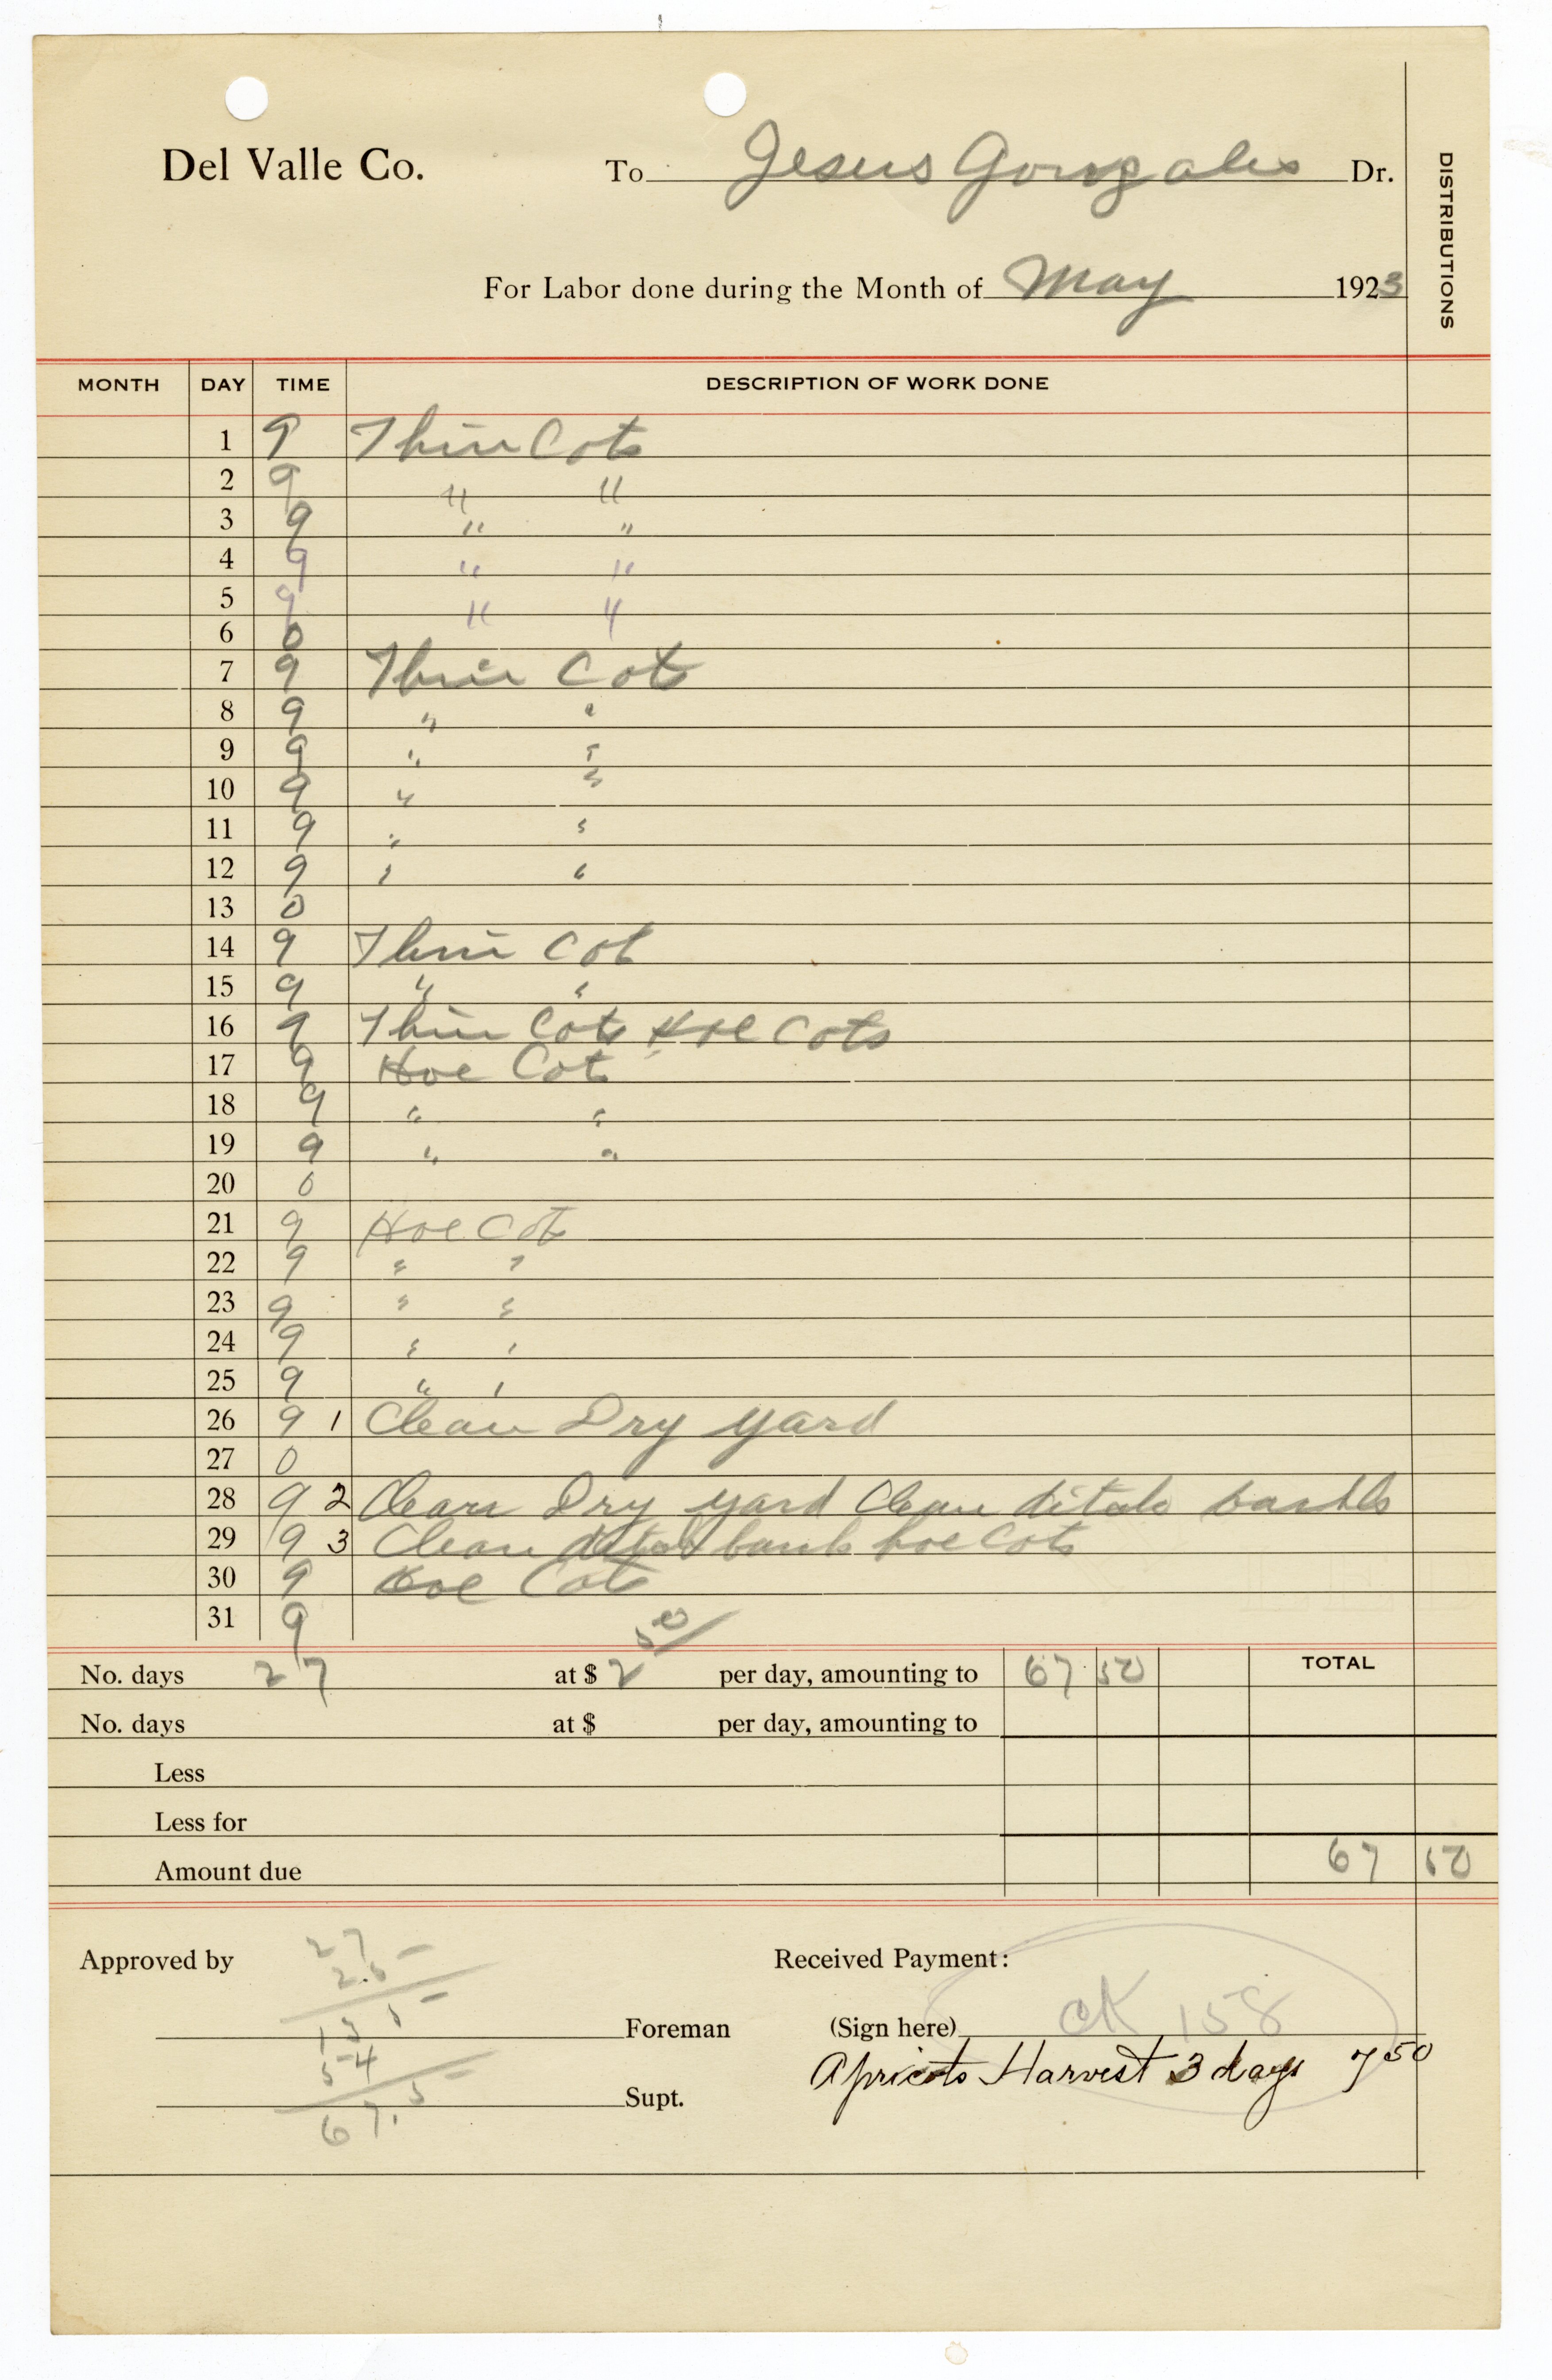 Del Valle Co. To Jesus Gonzales Dr.
DISTRIBUTIONS
For Labor done during the Month of May 1923
MONTH DAY TIME DESCRIPTION OF WORK DONE
1 9 Thin Cots
2 9 " "
3 9 " "
4 9 " "
5 9 " "
6 0
7 9 Thin Cots
8 9 " "
9 9 " "
10 9 " "
11 9 " "
12 9 " "
13 0
14 9 Thin Cot
15 9 " "
16 9 Thin Cots Hoe Cots
17 9 Hoe Cots
18 9 " "
19 9 " "
20 0
21 9 Hoe Cots
22 9 " "
23 9 " "
24 9 " "
25 9 " "
26 9 1 Clean Dry yard
27 0
28 9 2 Clean Dry yard Clean ditch banks
29 9 3 Clean ditch bank hoe Cots
30 9 Hoe Cots
31 9
No. days 27 at $ 2 50/ per day, amounting to 67 50 TOTAL
No. days at $ per day, amounting to
Less
Less for
Amount due 67 50
Approved by 27 Received Payment:
2.5
135 Foreman (Sign here) CK 158
54 Apricots Harvest 3 days 7 50
Supt.
67.5